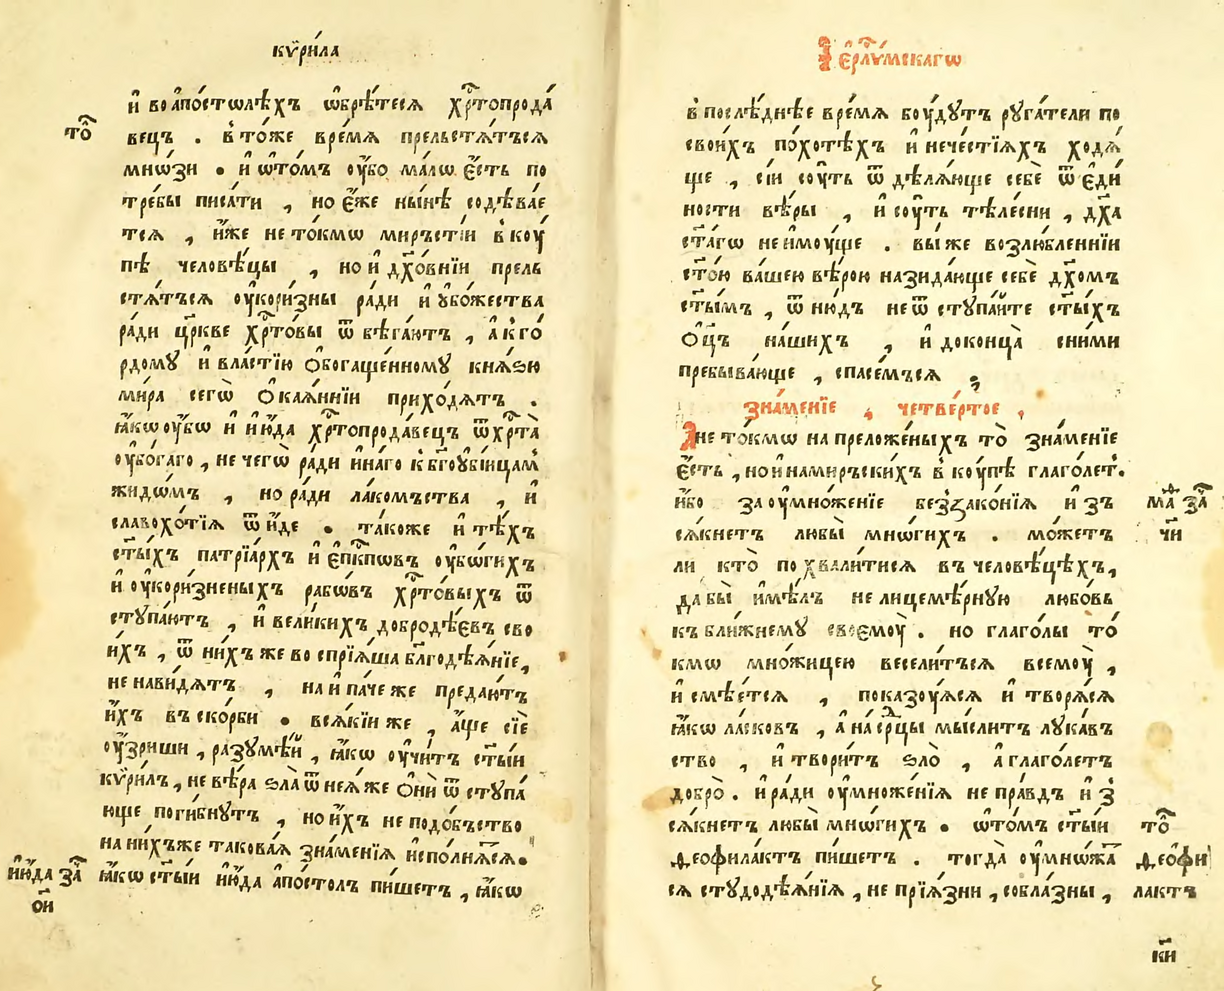 кѷри́ла
и҆ во а҆по́стѡлѣхъ ѡ҆брѣ́теся хрⷭ҇топрода́
то̑
вецъ . в то́же вре́мѧ прельстѧ́тъсѧ
мнѡ́зи . и҆ ѡ҆то́мъ ᲂу҆́бо ма́лѡ є҆́сть по
тре́бы писа́ти , но є҆́же ны́нѣ содѣ́вае
тсѧ , и҆́же не то́кмѡ ми́рьстїи в коу́
пѣ человѣ́цы , но и҆ дх҃о́внїи прель
стѧ́тъсѧ ᲂу҆кори́зны ра́ди и҆ ᲂу҆бо́жества
ра́ди цр҃кве хрⷭ҇то́вы ѿ бѣга́ютъ , а҆ к го́
рдомꙋ и҆ вла́стїю ѻ҆богаще́нномꙋ кнѧ́ѕю
ми́ра сегѡ̀ ѻ҆каѧ́ннїи прихо́дѧтъ .
ꙗ҆́кѡ ᲂу҆́бѡ и҆ и҆ю́да хрⷭ҇топрода́вецъ ѿ хрⷭ҇та̀
ᲂу҆бо́гаго , не чегѡ̀ ра́ди и҆на́го к бг҃оуби́йцамъ
жидѡ́мъ , но ра́ди ла́комъства , и҆
славохо́тїѧ ѿ и҆́де . та́коже и҆ тѣ́хъ
ст҃ы́хъ патрїа́рхъ и҆ є҆пⷭ҇кпѡвъ ᲂу҆бѡ́гихъ
и҆ ᲂу҆кори́зненыхъ рабѡ́въ хрⷭ҇то́выхъ ѿ
стꙋпа́ютъ , и҆ вели́кихъ добродѣ́євъ сво
и́хъ , ѿ ни́хъ же во спрїѧ́ша бл҃годѣѧ́нїе,
не нави́дѧтъ , на и҆ па́че же предаю́тъ
и҆́хъ въ ско́рби . всѧ́кїи же , а҆́ще сїѐ
ᲂу҆́зриши , разꙋмѣ́й , ꙗ҆́кѡ ᲂу҆чи́тъ ст҃ы́и
кѷри́лъ , не вѣ́ра ѕла̀ ѿ неѧ́ же ѻ҆нѝ ѿ стꙋпа́
юще поги́бнꙋтъ , но и҆́хъ не подо́бъство
на ни́хъже такова́ѧ зна́менїѧ и҆спо́лнѧ́сѧ.
и҆ю́да за̑
ꙗ҆́кѡ ст҃ы́и и҆ю́да а҆по́столъ пи́шетъ , ꙗ҆́кѡ
ѻ҃и
І҆ є҆рⷭ҇лѵ́мскагѡ
в послѣ́днѣе вре́мѧ боу́дꙋтъ рꙋга́тели по
свои́хъ по́хотѣхъ и҆ нече́стїѧхъ ходѧ́
ще , сїи́ соу́ть ѿ дѣлѧ́юще себѐ ѿ є҆ди́
ности вѣ́ры , и҆ соу́ть тѣле́сни , дх҃а
ст҃а́гѡ не и҆моу́ще . вы́ же возлю́бленнїи
ст҃о́ю ва́шею вѣ́рою назида́юще себѐ дх҃омъ
ст҃ы́мъ , ѿ ню́дъ не ѿ стꙋпа́йте ст҃ы́хъ
ѻ҆ц҃ъ на́шихъ , и҆ до конца̀ с ни́ми
пребыва́юще , спасе́мъсѧ ;
зна́менїе , четве́ртое ,
А не то́кмѡ на преложе́ныхъ то̀ зна́менїе
є҆́сть , но и҆ на ми́рьскихъ в коу́пѣ глаго́лет.
и҆́бо за ᲂу҆множе́нїе без̾зако́нїѧ и҆ зъ
ма̑ за̑
сѧ́кнетъ любы̀ мнѡ́гихъ . мо́жетъ
чи
ли кто̀ по хвали́тисѧ въ человѣ́цѣхъ,
да бы̀ и҆мѣ́лъ не лицемѣ́рнꙋю любо́вь
къ бли́жнемꙋ своемоу̀ . но глаго́лы то́
кмѡ мно́жицею весели́тъсѧ всемоу̀ ,
и҆ смѣе́тсѧ , показоу́ѧсѧ и҆ творѧ́сѧ
ꙗ҆́кѡ ла́сковъ , а҆ на срⷣцы мы́слитъ лꙋка́в
ство , и҆ твори́тъ ѕло̀ , а҆ глаго́летъ
добро̀ . и҆ ра́ди ᲂу҆множе́нїѧ не пра́вдъ и҆ з̾
сѧ́кнетъ любы̀ мнѡ́гихъ . ѡ҆то́мъ ст҃ы́и
то̑
ѳеофила́ктъ пи́шетъ . тогда̀ ᲂу҆мнѡ́жа̑
ѳеофи
сѧ стꙋдодѣѧ́нїѧ , не прїѧ́зни , собла́зны ,
лактъ
к҃и